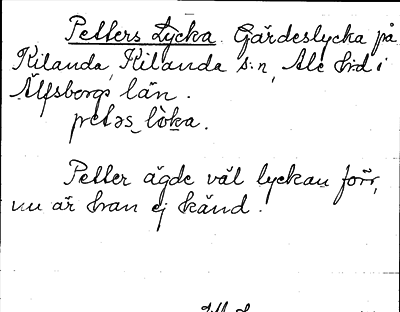 Petters Lycka. Gärdeslycka på
Kilanda, Kilanda s:n, Ale hd i
Älfsborgs län.
petəs_lòka.
Petter ägde väl lyckan förr,
nu är han ej känd.